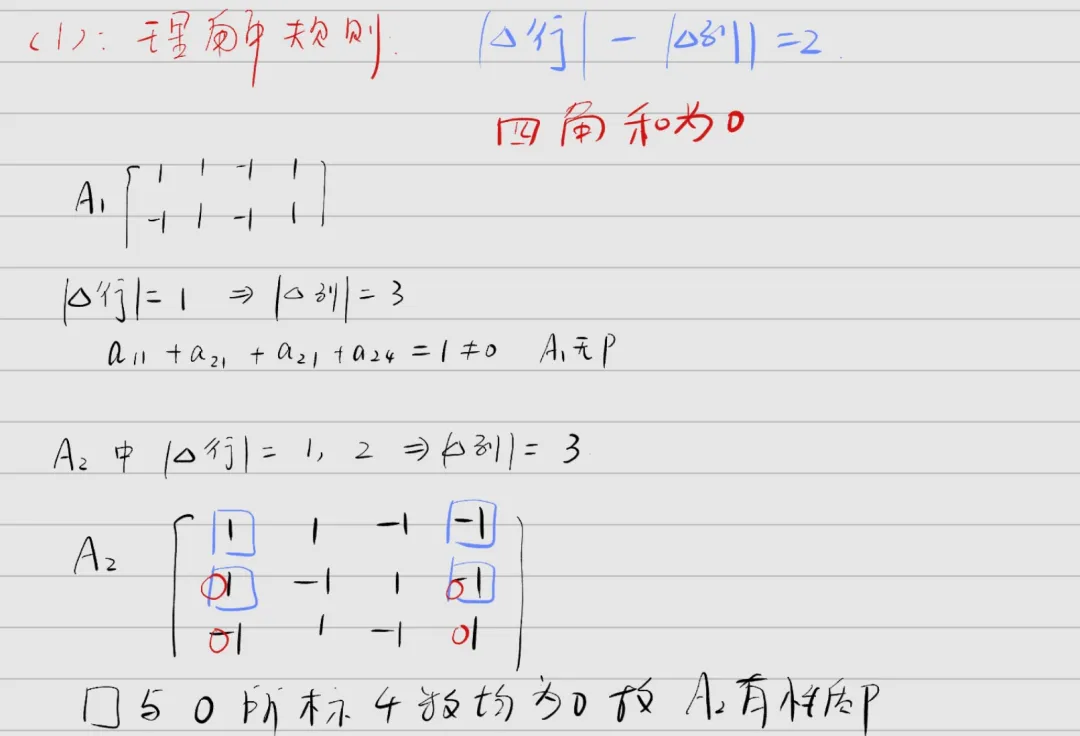 (1): 理解规则. |△行| - |△列| = 2
四角和为0
A₁ [ 1 1 -1 1
-1 1 -1 1 ]
|△行| = 1 ⇒ |△列| = 3
a₁₁ + a₂₁ + a₂₁ + a₂₄ = 1 ≠ 0 A₁无P
A₂ 中 |△行| = 1, 2 ⇒ |△列| = 3
A₂ [ 1 1 -1 -1
1 -1 1 -1
-1 1 -1 1 ]
□与0所标4数均为0故 A₂有性质P